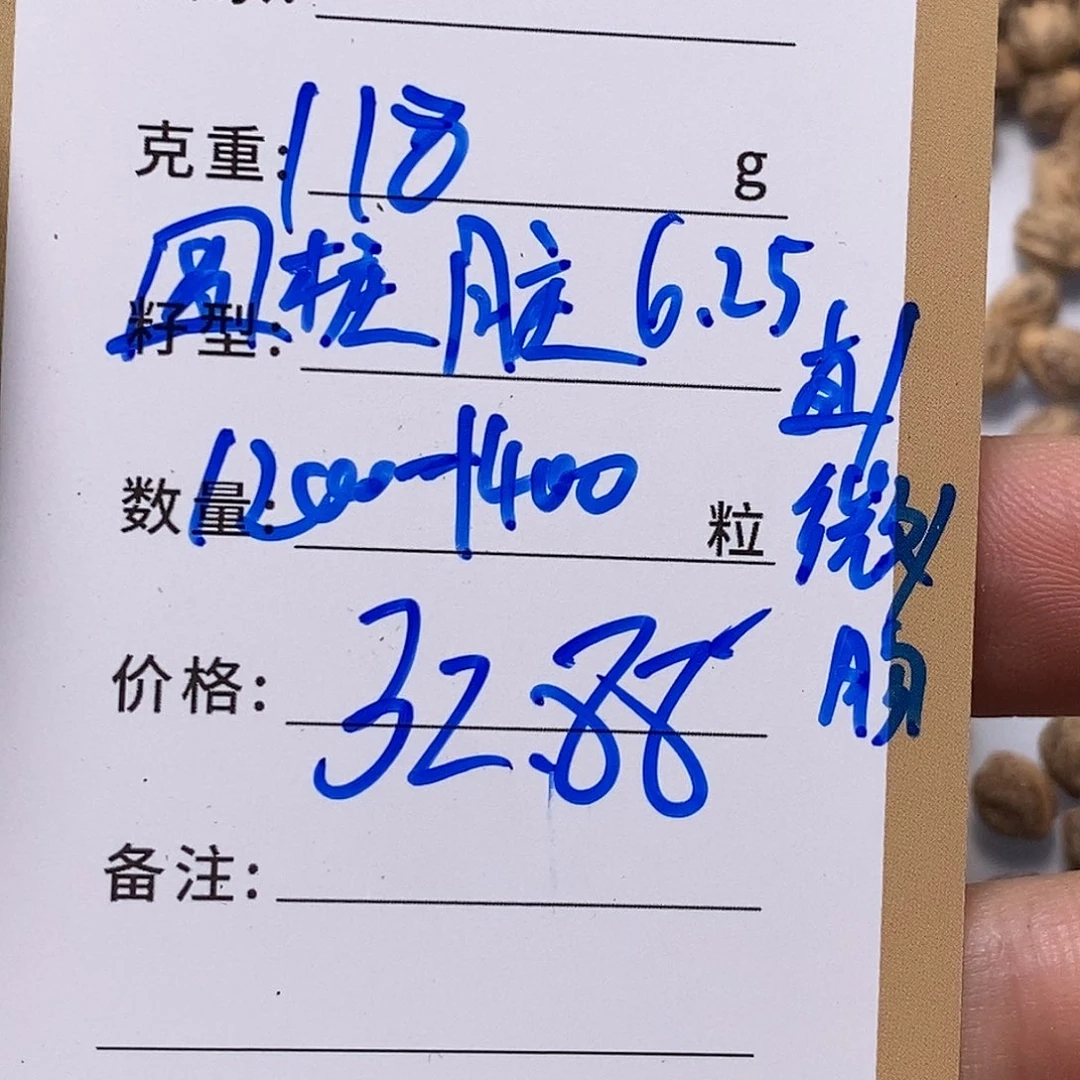 克重: 118 g
籽型: 圆桩 6.25
数量: 1200-1400 粒
价格: 32.88
备注: